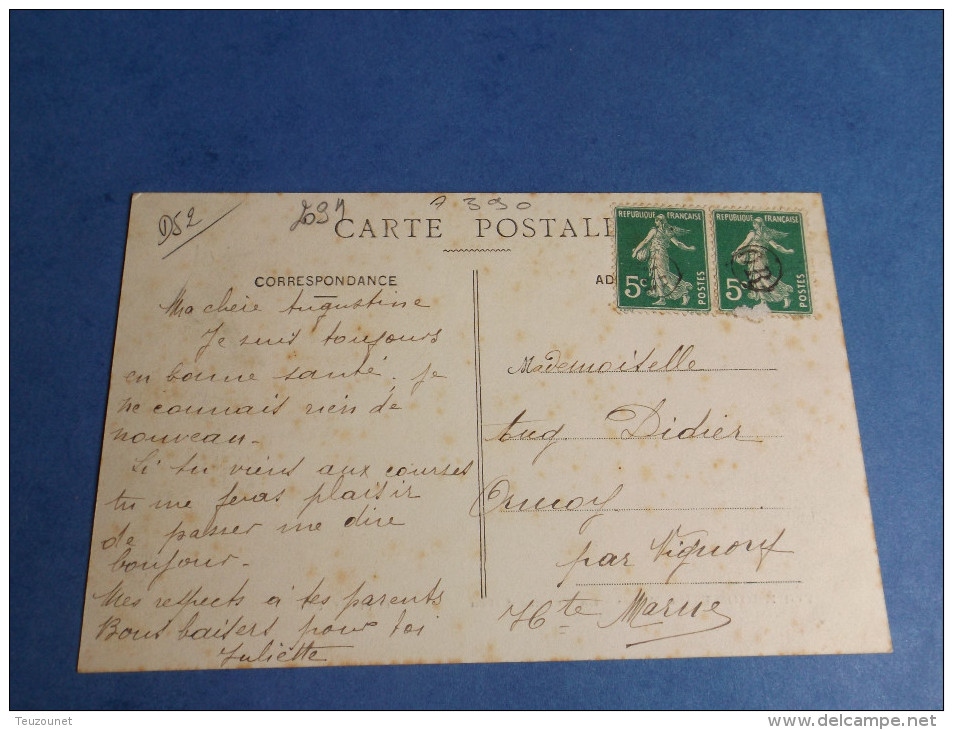 D52
A 390
CARTE POSTALE
CORRESPONDANCE
AD
REPUBLIQUE FRANÇAISE
5c
POSTES
REPUBLIQUE FRANÇAISE
5
POSTES
OR
Ma chère Augustine
Je suis toujours
en bonne santé. Je
ne connais rien de
nouveau.
Si tu viens aux courses
tu me feras plaisir
de passer me dire
bonjour.
Mes respects à tes parents
Bons baisers pour toi
Juliette
Mademoiselle
Aug. Didier
Ormoy
par Vignory
Hte Marne
Teuzounet
http://www.delcampe.net